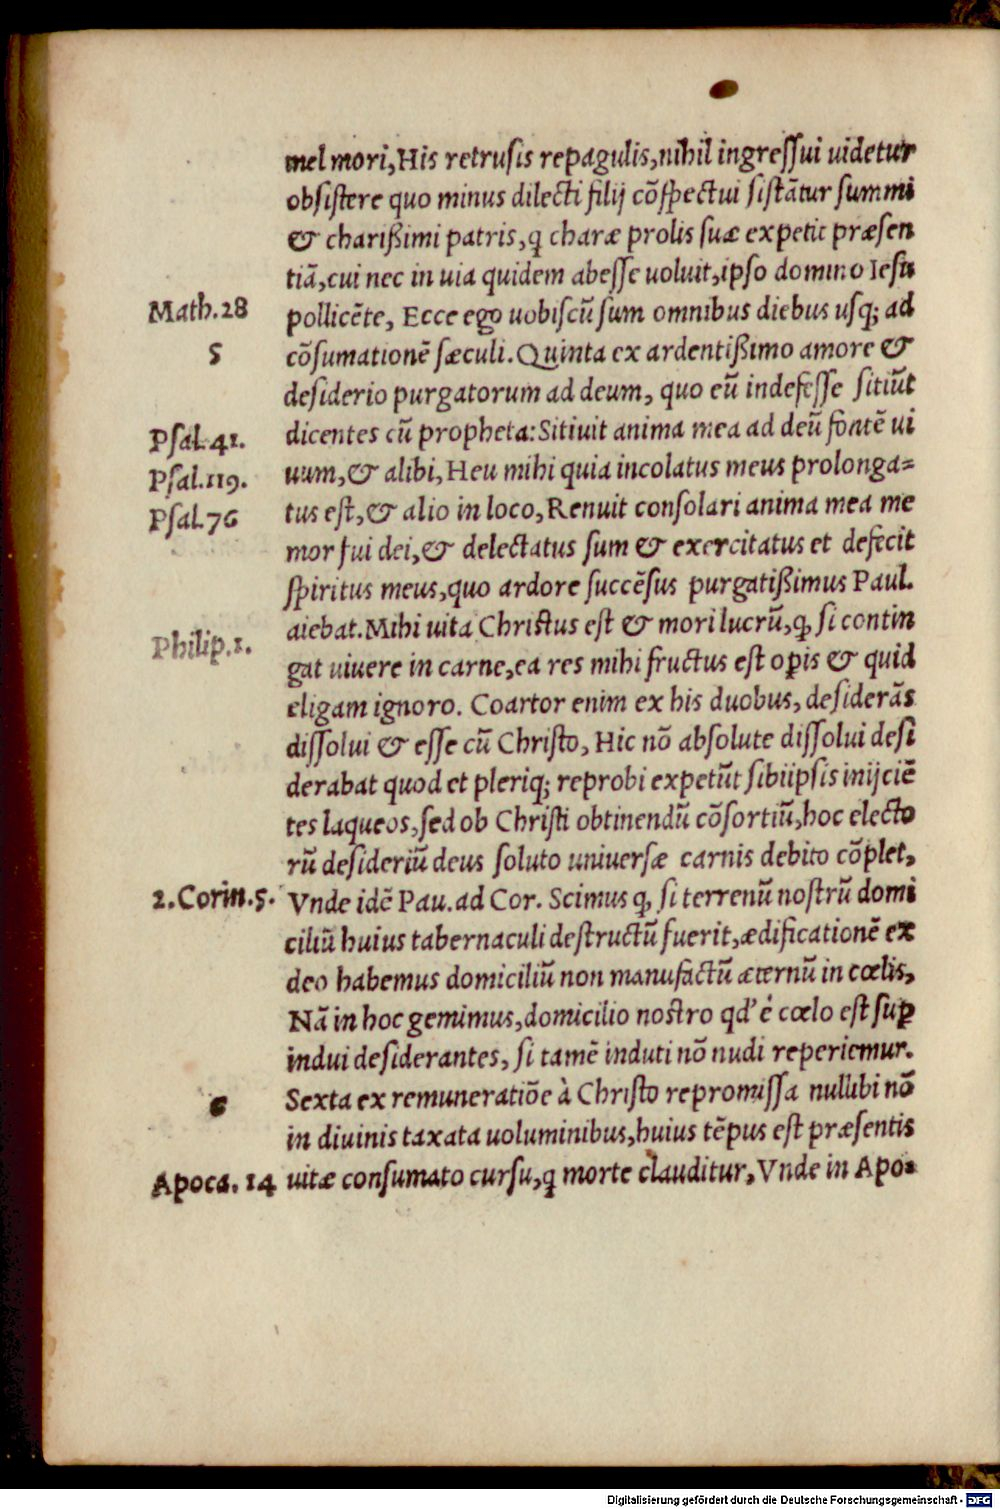 mel mori, His retrusis repagulis, nihil ingreſſui uidetur
obsistere quo minus dilecti filij cõſpectui sistãtur summi
& charißimi patris, q charæ prolis suæ expetit præsen
tiã, cui nec in uia quidem abeſſe uoluit, ipso domino Iesu
Math.28 pollicẽte, Ecce ego uobiscũ sum omnibus diebus usq; ad
5 cõsumationẽ sæculi. Quinta ex ardentißimo amore &
desiderio purgatorum ad deum, quo eũ indefeſſe sitiũt
Psal.41. dicentes cũ propheta: Sitiuit anima mea ad deũ fontẽ ui
Psal.119. uum, & alibi, Heu mihi quia incolatus meus prolonga=
Psal.76 tus est, & alio in loco, Renuit consolari anima mea me
mor fui dei, & delectatus sum & exercitatus et defecit
spiritus meus, quo ardore succẽsus purgatißimus Paul.
Philip.1. aiebat. Mihi uita Christus est & mori lucrũ, q, si contin
gat uiuere in carne, ea res mihi fructus est opis & quid
eligam ignoro. Coartor enim ex his duobus, desiderãs
diſſolui & eſſe cũ Christo, Hic nõ absolute diſſolui desi
derabat quod et pleriq; reprobi expetũt sibiipsis inijciẽ
tes laqueos, sed ob Christi obtinendũ cõsortiũ, hoc electo
rũ desideriũ deus soluto uniuersæ carnis debito cõplet,
2.Corin.5. Vnde idẽ Pau. ad Cor. Scimus q, si terrenũ nostrũ domi
ciliũ huius tabernaculi destructũ fuerit, ædificationẽ ex
deo habemus domiciliũ non manufactũ æternũ in cœlis,
Nã in hoc gemimus, domicilio nostro qd' ẻ cœlo est sup
indui desiderantes, si tamẽ induti nõ nudi reperiemur.
6 Sexta ex remuneratiõe à Christo repromiſſa nullibi nõ
in diuinis taxata uoluminibus, huius tẽpus est præsentis
Apoca. 14 uitæ consumato cursu, q morte clauditur, Vnde in Apo=
Digitalisierung gefördert durch die Deutsche Forschungsgemeinschaft - DFG